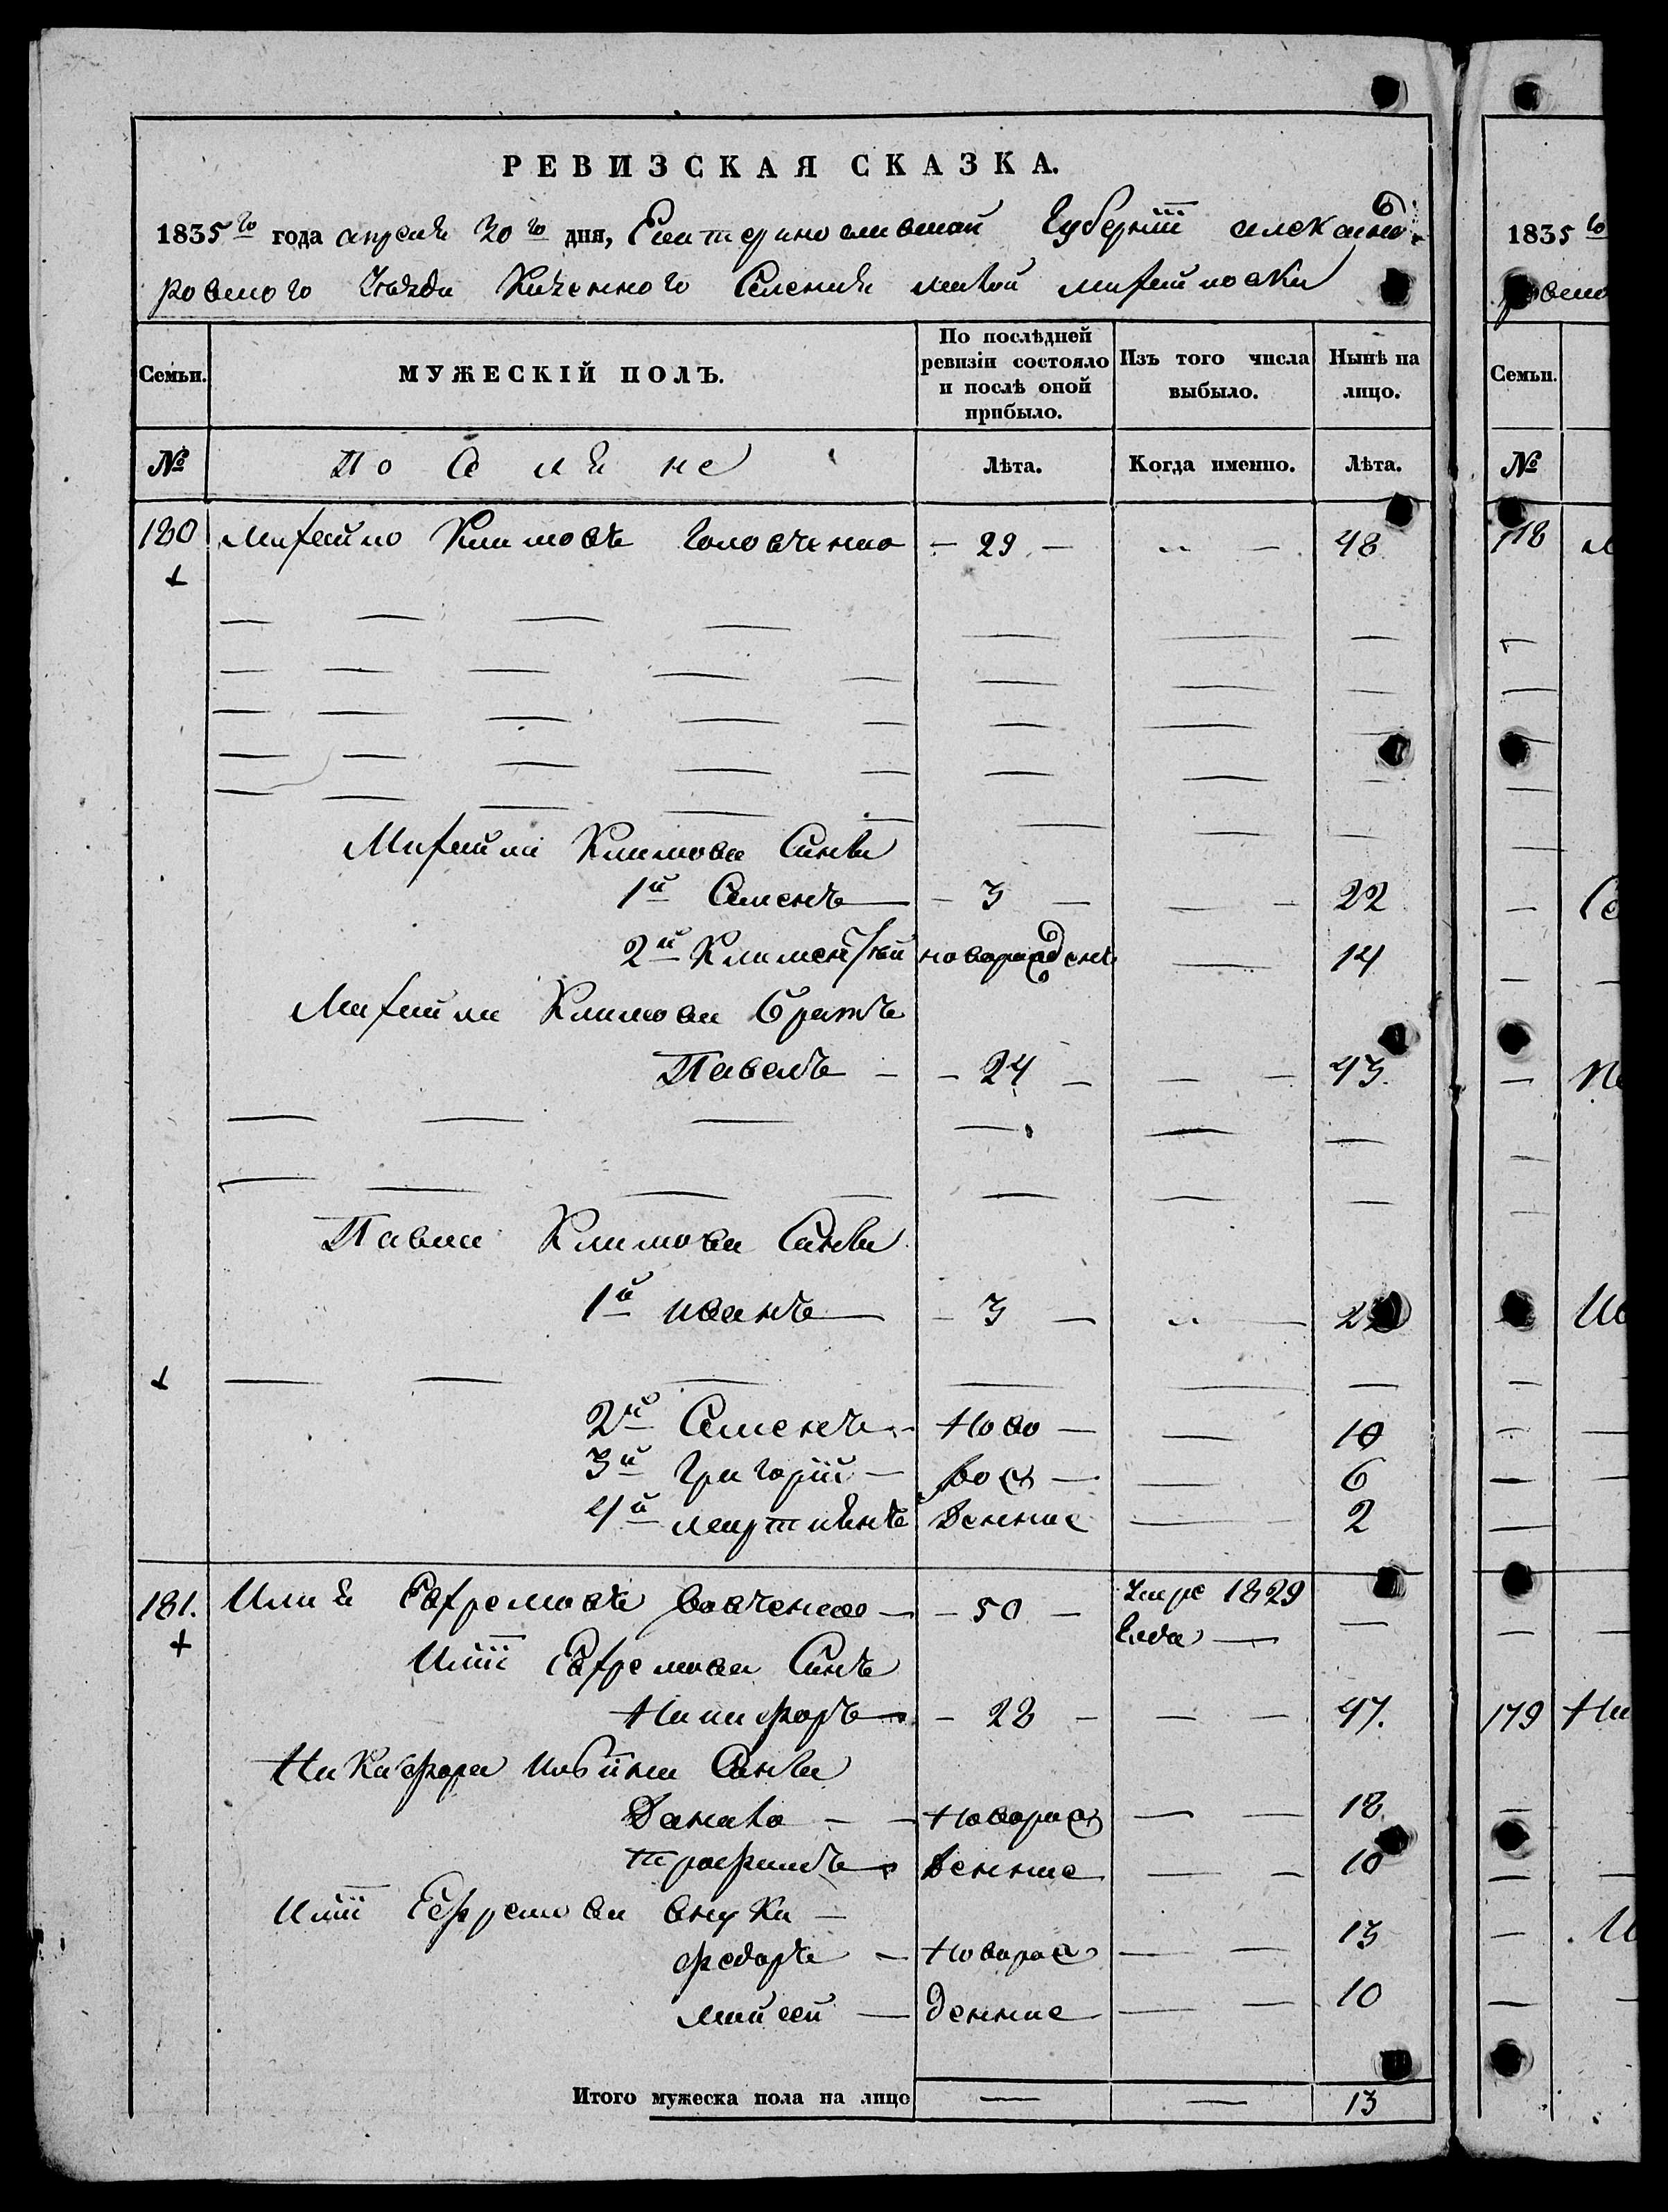 РЕВИЗСКАЯ СКАЗКА.
1835го года апреля 30го дня, Екатеринославской Губернiи александ-
ровского Уѣзда Казенного Селенiя малой михайловки
Семьи. МУЖЕСКІЙ ПОЛЪ. По послѣдней ревизіи состояло и послѣ оной прибыло. Изъ того числа выбыло. Нынѣ на лицо.
№ Поселяне Лѣта. Когда именно. Лѣта.
180 михайло Климовъ Головченко - 29 - 48
Михайлы Климова Сыны
1й Семенъ - 3 - 22
2й Климентiй новорожденъ 14
Михайлы Климова Братъ
Павелъ - 24 - 43.
Павла Климова Сыны
1й иванъ - 3 - 22
2й Семенъ Ново 10
3й Григорiй рож 6
4й мартинъ денние 2
181. Илия Ефремовъ Вовченко - 50 - Умре 1829 Года
Илiи Ефремова Сынъ
Никифоръ - 28 - 47.
Никифора Ильина Сыны
Данило Новорож 18.
трофимъ денние 10
Илiи Ефремова внуки
федоръ Новорож 13
мойсей денние 10
Итого мужеска пола на лицо 13
1835го
ровско
Семьи.
№
118
179 Ни